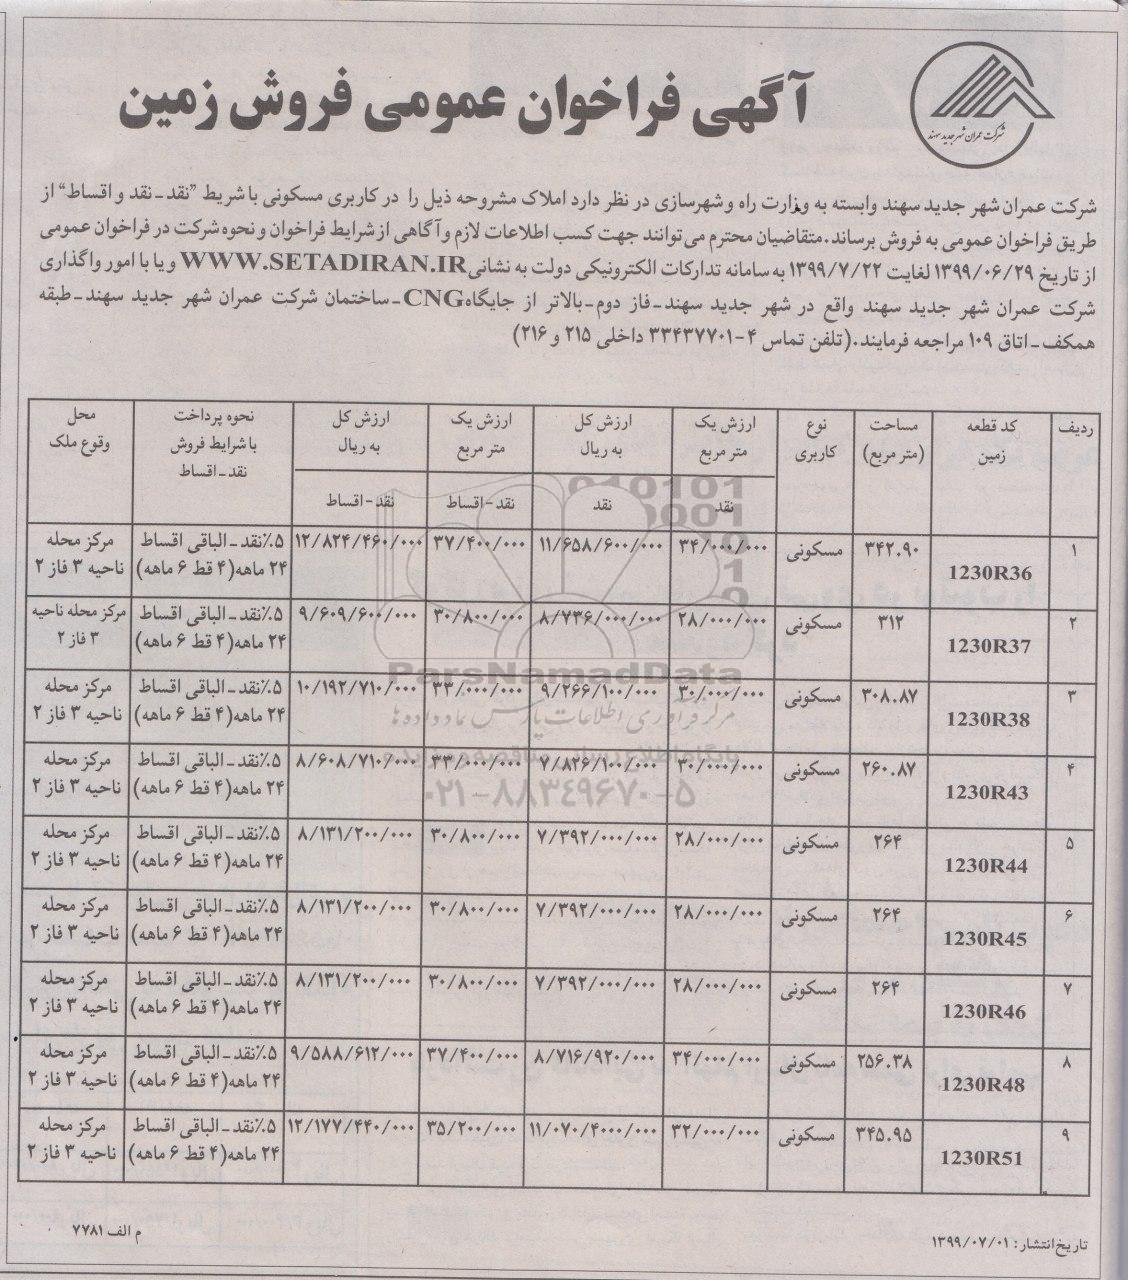 آگهی فراخوان عمومی فروش زمین
شرکت عمران شهر جدید سهند
شرکت عمران شهر جدید سهند وابسته به وزارت راه و شهرسازی در نظر دارد املاک مشروحه ذیل را در کاربری مسکونی با شریط "نقد - نقد و اقساط" از
طریق فراخوان عمومی به فروش برساند. متقاضیان محترم می‌توانند جهت کسب اطلاعات لازم و آگاهی از شرایط فراخوان و نحوه شرکت در فراخوان عمومی
از تاریخ ۱۳۹۹/۰۶/۲۹ لغایت ۱۳۹۹/۷/۲۲ به سامانه تدارکات الکترونیکی دولت به نشانی WWW.SETADIRAN.IR و یا با امور واگذاری
شرکت عمران شهر جدید سهند واقع در شهر جدید سهند - فاز دوم - بالاتر از جایگاه CNG - ساختمان شرکت عمران شهر جدید سهند - طبقه
همکف - اتاق ۱۰۹ مراجعه فرمایند. (تلفن تماس ۴-۳۳۴۳۷۷۰۱ داخلی ۲۱۵ و ۲۱۶)
ردیف | کد قطعه زمین | مساحت (متر مربع) | نوع کاربری | ارزش یک متر مربع نقد | ارزش کل به ریال نقد | ارزش یک متر مربع نقد - اقساط | ارزش کل به ریال نقد - اقساط | نحوه پرداخت با شرایط فروش نقد - اقساط | محل وقوع ملک
۱ | 1230R36 | ۳۴۲.۹۰ | مسکونی | ۳۴/۰۰۰/۰۰۰ | ۱۱/۶۵۸/۶۰۰/۰۰۰ | ۳۷/۴۰۰/۰۰۰ | ۱۲/۸۲۴/۴۶۰/۰۰۰ | ۵٪ نقد - الباقی اقساط ۲۴ ماهه (۴ قط ۶ ماهه) | مرکز محله ناحیه ۳ فاز ۲
۲ | 1230R37 | ۳۱۲ | مسکونی | ۲۸/۰۰۰/۰۰۰ | ۸/۷۳۶/۰۰۰/۰۰۰ | ۳۰/۸۰۰/۰۰۰ | ۹/۶۰۹/۶۰۰/۰۰۰ | ۵٪ نقد - الباقی اقساط ۲۴ ماهه (۴ قط ۶ ماهه) | مرکز محله ناحیه ۳ فاز ۲
۳ | 1230R38 | ۳۰۸.۸۷ | مسکونی | ۳۰/۰۰۰/۰۰۰ | ۹/۲۶۶/۱۰۰/۰۰۰ | ۳۳/۰۰۰/۰۰۰ | ۱۰/۱۹۲/۷۱۰/۰۰۰ | ۵٪ نقد - الباقی اقساط ۲۴ ماهه (۴ قط ۶ ماهه) | مرکز محله ناحیه ۳ فاز ۲
۴ | 1230R43 | ۲۶۰.۸۷ | مسکونی | ۳۰/۰۰۰/۰۰۰ | ۷/۸۲۶/۱۰۰/۰۰۰ | ۳۳/۰۰۰/۰۰۰ | ۸/۶۰۸/۷۱۰/۰۰۰ | ۵٪ نقد - الباقی اقساط ۲۴ ماهه (۴ قط ۶ ماهه) | مرکز محله ناحیه ۳ فاز ۲
۵ | 1230R44 | ۲۶۴ | مسکونی | ۲۸/۰۰۰/۰۰۰ | ۷/۳۹۲/۰۰۰/۰۰۰ | ۳۰/۸۰۰/۰۰۰ | ۸/۱۳۱/۲۰۰/۰۰۰ | ۵٪ نقد - الباقی اقساط ۲۴ ماهه (۴ قط ۶ ماهه) | مرکز محله ناحیه ۳ فاز ۲
۶ | 1230R45 | ۲۶۴ | مسکونی | ۲۸/۰۰۰/۰۰۰ | ۷/۳۹۲/۰۰۰/۰۰۰ | ۳۰/۸۰۰/۰۰۰ | ۸/۱۳۱/۲۰۰/۰۰۰ | ۵٪ نقد - الباقی اقساط ۲۴ ماهه (۴ قط ۶ ماهه) | مرکز محله ناحیه ۳ فاز ۲
۷ | 1230R46 | ۲۶۴ | مسکونی | ۲۸/۰۰۰/۰۰۰ | ۷/۳۹۲/۰۰۰/۰۰۰ | ۳۰/۸۰۰/۰۰۰ | ۸/۱۳۱/۲۰۰/۰۰۰ | ۵٪ نقد - الباقی اقساط ۲۴ ماهه (۴ قط ۶ ماهه) | مرکز محله ناحیه ۳ فاز ۲
۸ | 1230R48 | ۲۵۶.۳۸ | مسکونی | ۳۴/۰۰۰/۰۰۰ | ۸/۷۱۶/۹۲۰/۰۰۰ | ۳۷/۴۰۰/۰۰۰ | ۹/۵۸۸/۶۱۲/۰۰۰ | ۵٪ نقد - الباقی اقساط ۲۴ ماهه (۴ قط ۶ ماهه) | مرکز محله ناحیه ۳ فاز ۲
۹ | 1230R51 | ۳۴۵.۹۵ | مسکونی | ۳۲/۰۰۰/۰۰۰ | ۱۱/۰۷۰/۴۰۰۰/۰۰۰ | ۳۵/۲۰۰/۰۰۰ | ۱۲/۱۷۷/۴۴۰/۰۰۰ | ۵٪ نقد - الباقی اقساط ۲۴ ماهه (۴ قط ۶ ماهه) | مرکز محله ناحیه ۳ فاز ۲
ParsNamadData
مرکز فرآوری اطلاعات پارس نماد داده‌ها
۰۲۱-۸۸۳۴۹۶۷۰-۵
تاریخ انتشار: ۱۳۹۹/۰۷/۰۱
م الف ۷۷۸۱